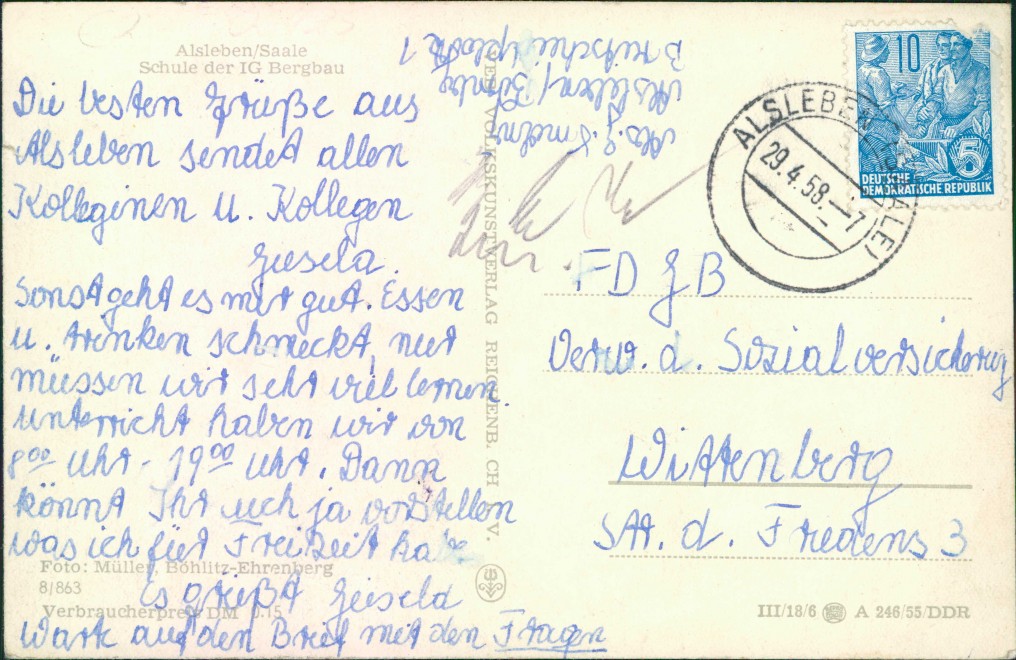 Alsleben/Saale
Schule der IG Bergbau
Die besten Grüße aus
Alsleben sendet allen
Kolleginen u. Kollegen
Gisela.
Sonst geht es mir gut. Essen
u. trinken schmeckt, nur
müssen wir sehr viel lernen.
Unterricht haben wir von
8⁰⁰ Uhr - 19⁰⁰ Uhr. Dann
könnt Ihr uch ja vorstellen
was ich für Freizeit habe
Foto: Müller, Böhlitz-Ehrenberg
8/863
Es grüßt Gisela
Verbraucherpreis DM 0.15
Wart auf den Brief mit den Fragen
Abs. G.
Alsleben/
1
VOLKSKUNSTVERLAG REICHENB. CH V.
10
5
DEUTSCHE
DEMOKRATISCHE REPUBLIK
ALSLEBEN (SAALE)
29.4.58.--7
FDGB
Verw. d. Sozialversicherung
Wittenberg
Str. d. Friedens 3
III/18/6 A 246/55/DDR